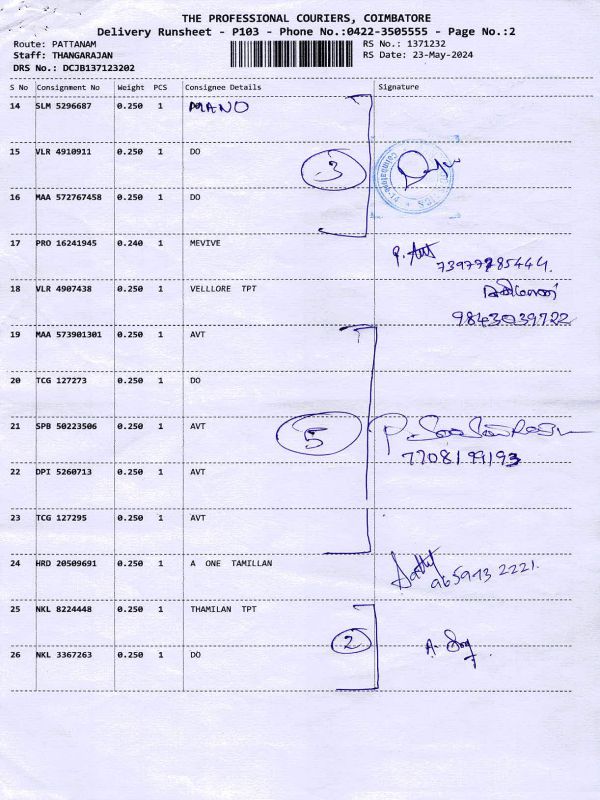 THE PROFESSIONAL COURIERS, COIMBATORE
Delivery Runsheet - P103 - Phone No.:0422-3505555 - Page No.:2
Route: PATTANAM RS No.: 1371232
Staff: THANGARAJAN RS Date: 23-May-2024
DRS No.: DCJB137123202
S No Consignment No Weight PCS Consignee Details Signature
14 SLM 5296687 0.250 1 MANO
15 VLR 4910911 0.250 1 DO
3
16 MAA 572767458 0.250 1 DO
17 PRO 16241945 0.240 1 MEVIVE
18 VLR 4907438 0.250 1 VELLLORE TPT
9843039722
19 MAA 573901301 0.250 1 AVT
20 TCG 127273 0.250 1 DO
21 SPB 50223506 0.250 1 AVT
5
7708199193
22 DPI 5260713 1 0.250 AVT
23 TCG 127295 0.250 1 AVT
24 HRD 20509691 0.250 1 A ONE TAMILLAN
9659132221.
25 NKL 8224448 0.250 1 THAMILAN TPT
2
26 NKL 3367263 0.250 1 DO